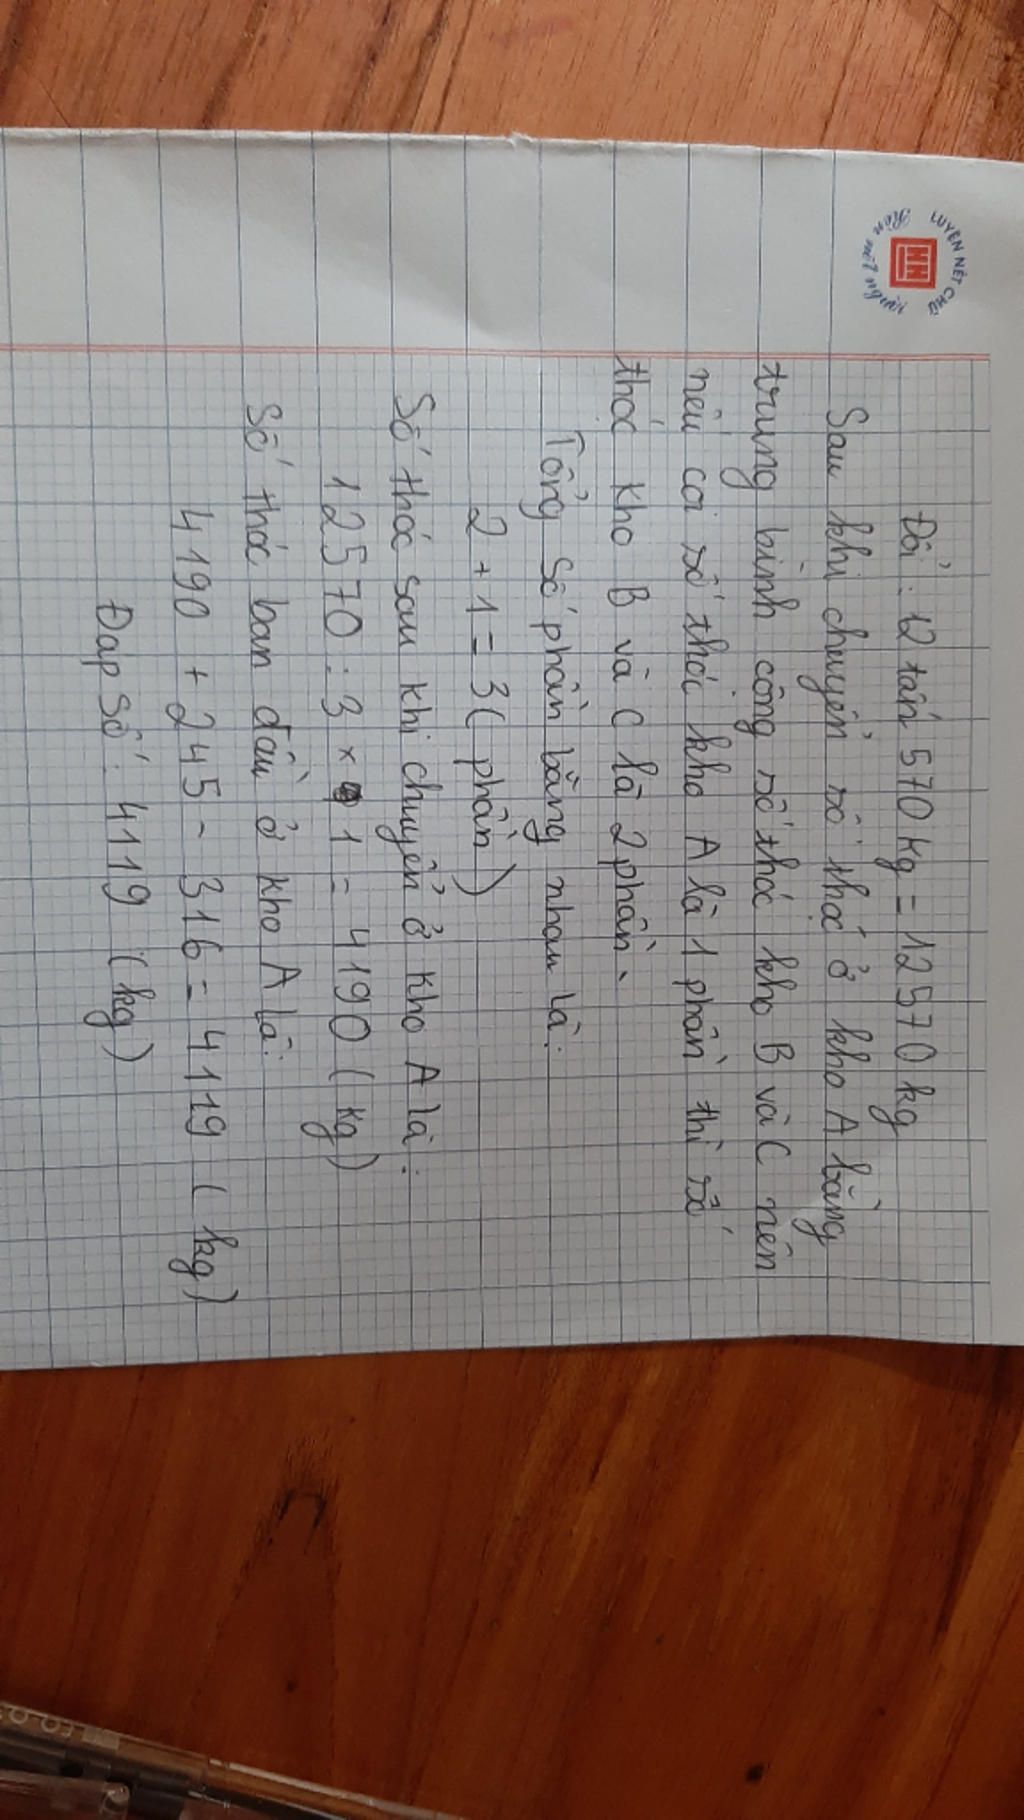 LUYỆN NÉT CHỮ
Rèn nết người
HH
Đổi : 12 tấn 570 kg = 12570 kg
Sau khi chuyển số thóc ở kho A bằng
trung bình cộng số thóc kho B và C nên
nếu coi số thóc kho A là 1 phần thì số
thóc kho B và C là 2 phần.
Tổng số phần bằng nhau là:
2 + 1 = 3 ( phần )
Số thóc sau khi chuyển ở kho A là :
12570 : 3 x 1 = 4190 ( kg )
Số thóc ban đầu ở kho A là:
4190 + 245 - 316 = 4119 ( kg )
Đáp số : 4119 (kg)